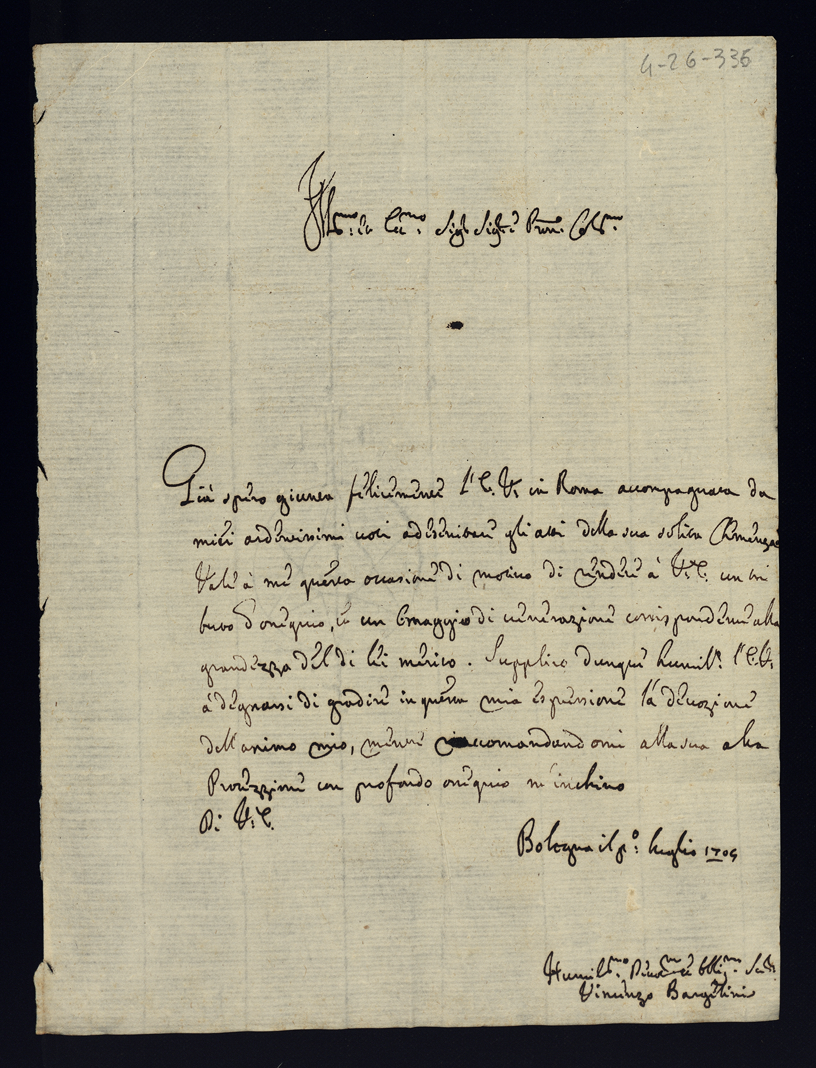 4-26-335
Ill.mo et Ecc.mo Sig.r Sig.r e Pron. Col.mo
Già spero giunta felicemente l'E. V. in Roma accompagnata da
miei ardentissimi voti ad esercitare gli atti della sua solita Clemenza
Vale à me questa occasione di motivo di rendere à V. E. un tri
buto d'ossequio, et un Omaggio di venerazione corrispondente alla
grandezza del di lei merito. Supplico dunque humil.e l'E. V.
à degnarsi di gradire in questa mia espressione la devozione
dell'animo mio, mentre raccomandandomi alla sua alta
Protezzione con profondo ossequio m'inchino
Di V. E.
Bologna il p.o luglio 1704
Humil.mo Divot.mo et Obblig.mo Ser.
Vincenzo Bargellini